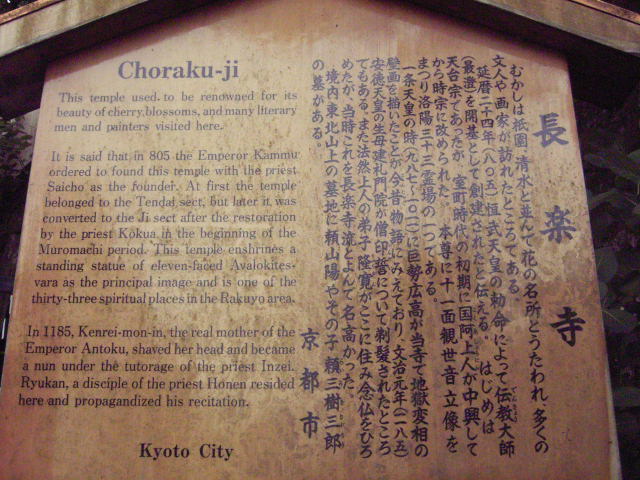 Choraku-ji
This temple used to be renowned for its
beauty of cherry blossoms, and many literary
men and painters visited here.
It is said that in 805 the Emperor Kammu
ordered to found this temple with the priest
Saicho as the founder. At first the temple
belonged to the Tendai sect, but later it was
converted to the Ji sect after the restoration
by the priest Kokua in the beginning of the
Muromachi period. This temple enshrines a
standing statue of eleven-faced Avalokites-
vara as the principal image and is one of the
thirty-three spiritual places in the Rakuyo area.
In 1185, Kenrei-mon-in, the real mother of the
Emperor Antoku, shaved her head and became
a nun under the tutorage of the priest Inzei.
Ryukan, a disciple of the priest Honen resided
here and propagandized his recitation.
Kyoto City
長楽寺
むかしは祇園清水と並んで花の名所とうたわれ、多くの
文人や画家が訪れたところである。
延暦二十四年(八〇五)恒武天皇の勅命によって伝教大師
(最澄)を開基として創建されたと伝える。はじめは
天台宗であったが、室町時代の初期に国阿上人が中興して
から時宗に改められた。本尊に十一面観世音立像を
まつり洛陽三十三霊場の一つである。
一条天皇の時(九八七〜一〇一一)に巨勢広高が当寺で地獄変相の
壁画を描いたことが今昔物語にみえており、文治元年(一一八五)
安徳天皇の生母建礼門院が僧印誓について剃髪されたところ
でもある。また法然上人の弟子隆寛がここに住み念仏をひろ
めたが、当時これを長楽寺流とよんで名高かった。
境内東北山上の墓地に頼山陽やその子頼三樹三郎
の墓がある。
京都市